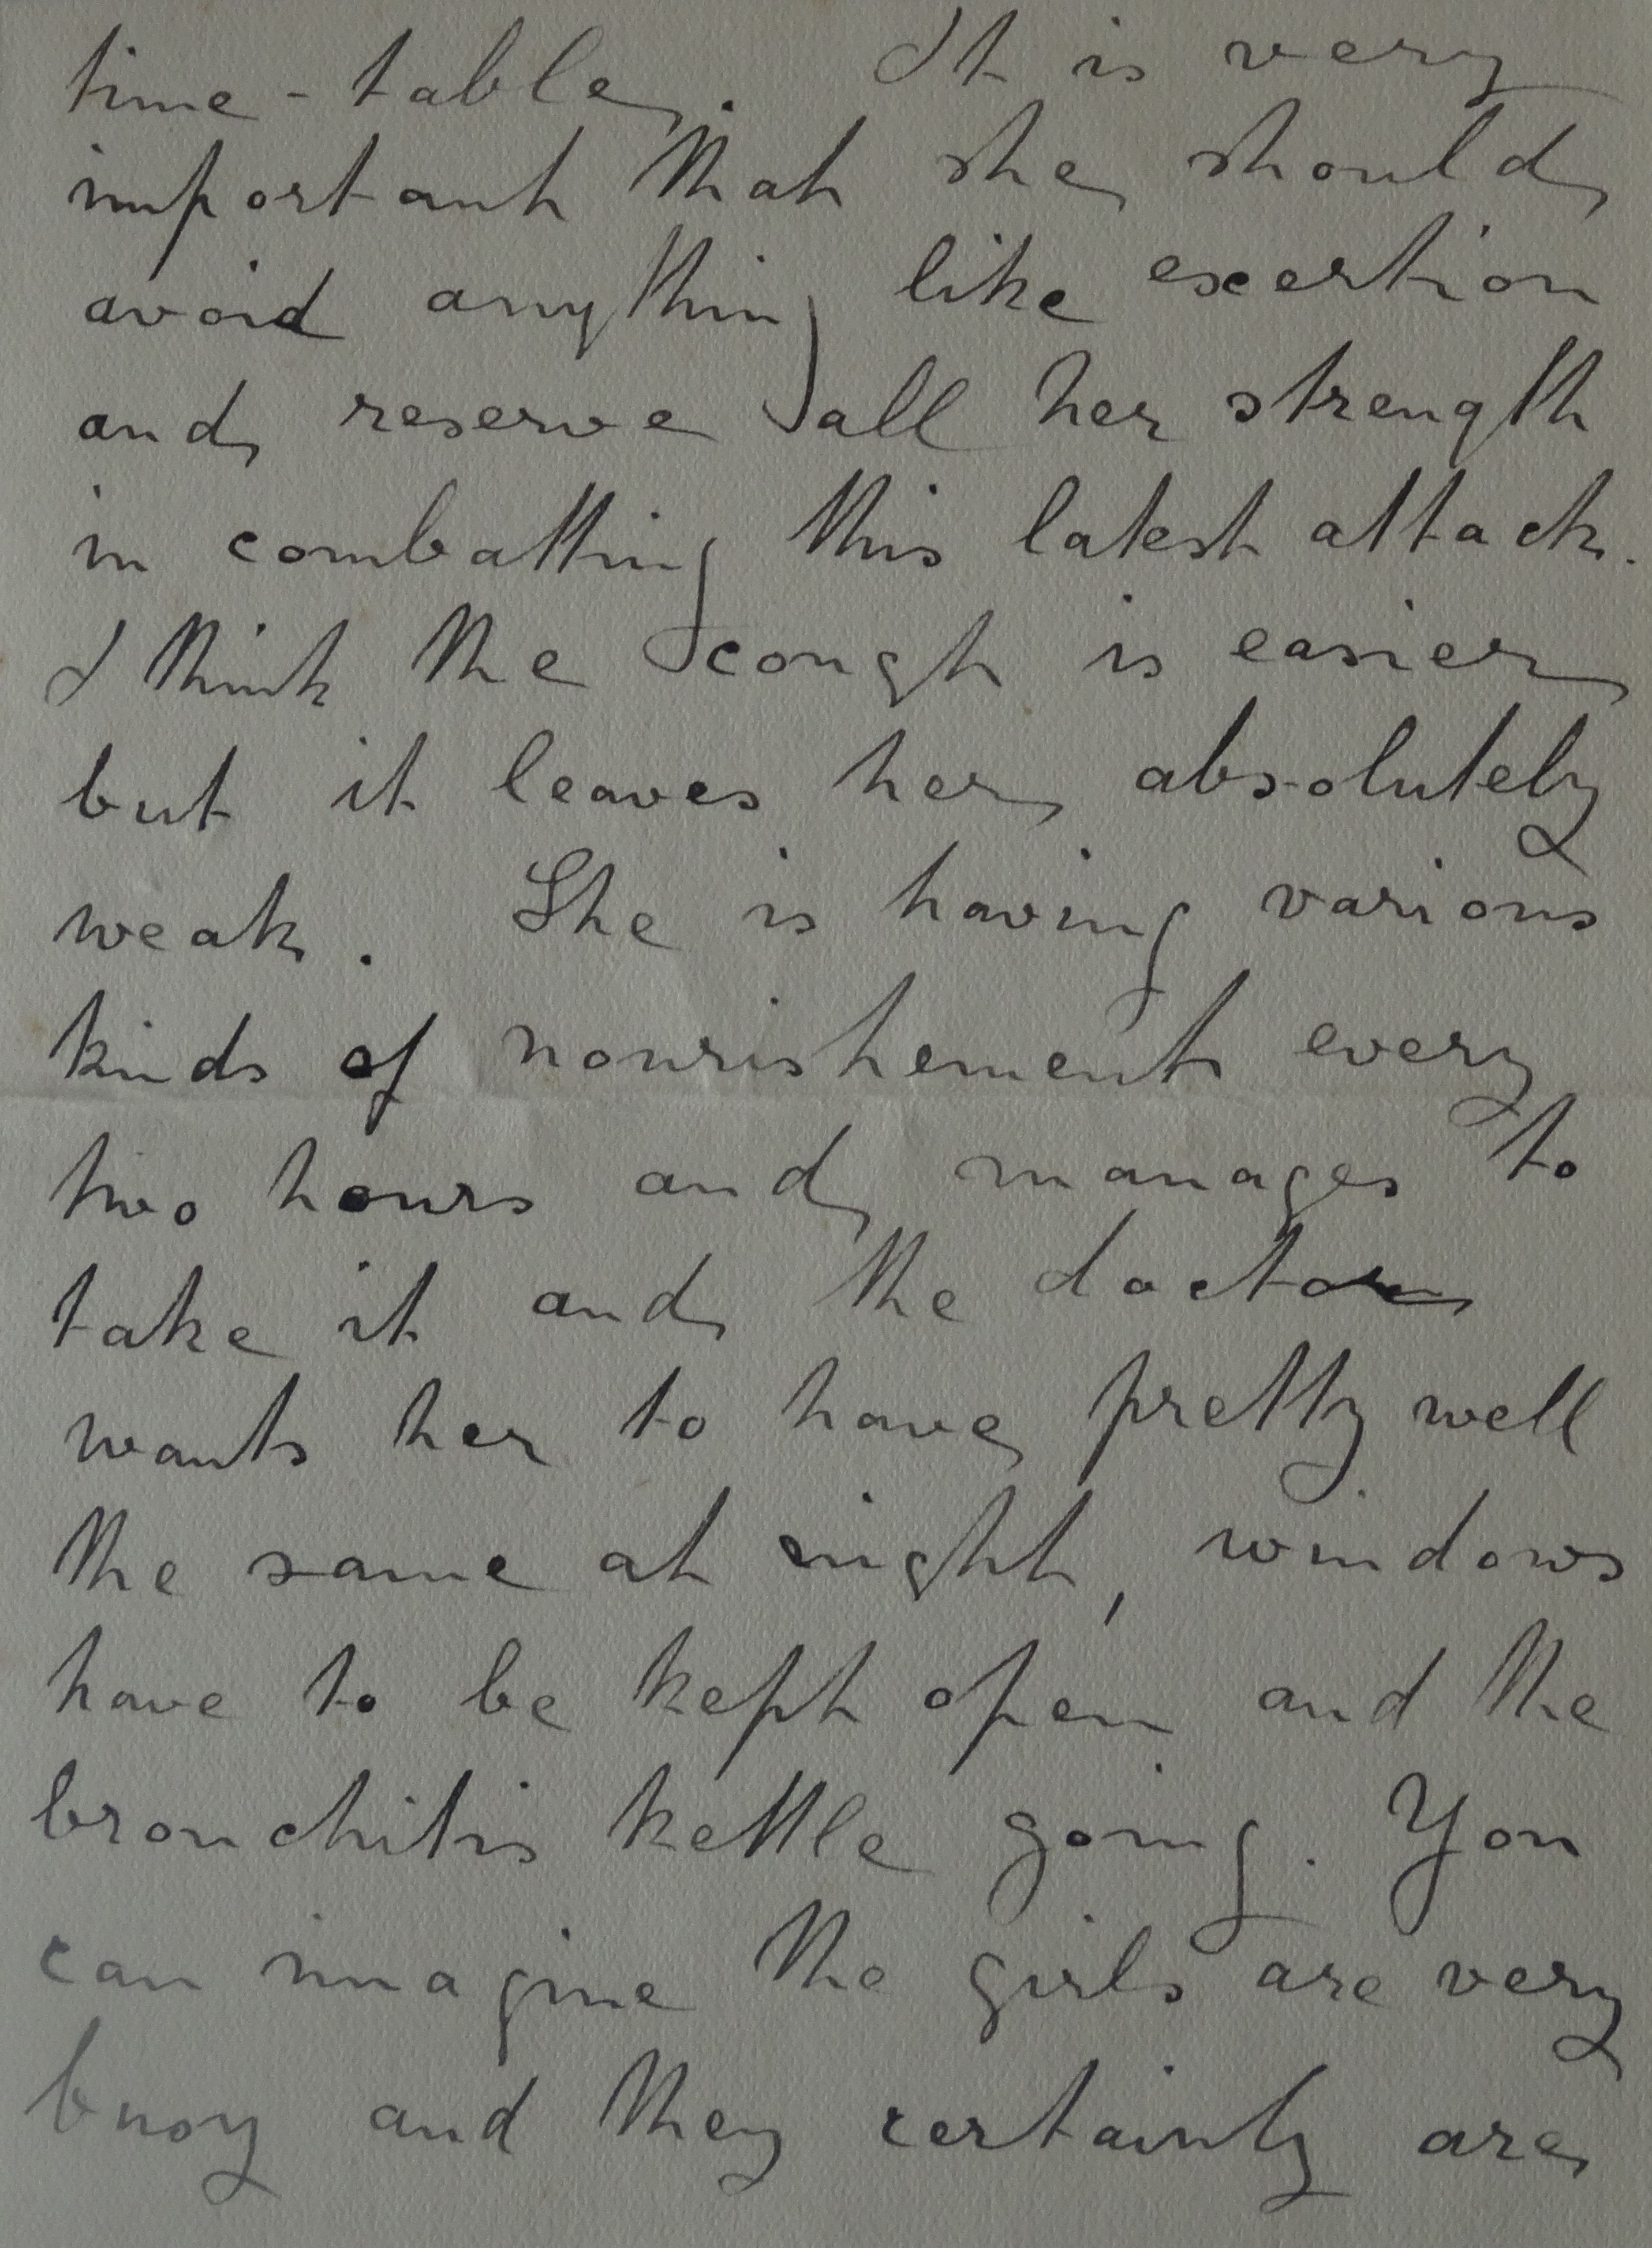 time-table. It is very
important that she should
avoid anything like exertion
and reserve all her strength
in combatting this latest attack.
I think the cough is easier
but it leaves her absolutely
weak. She is having various
kinds of nourishement every
two hours and manages to
take it and the doctor
wants her to have pretty well
the same at night, windows
have to be kept open and the
bronchitis kettle going. You
can imagine the girls are very
busy and they certainly are